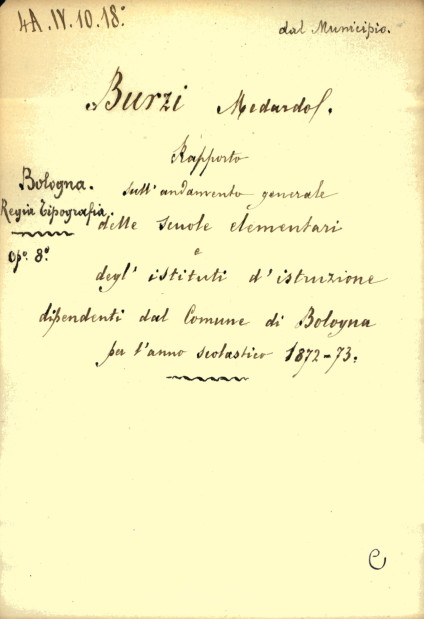 4A.IV.10.18.
dal Municipio.
Burzi Medardo.
Rapporto
Bologna.
sull'andamento generale
Regia Tipografia
delle scuole elementari
e
opº. 8º.
degl'istituti d'istruzione
dipendenti dal Comune di Bologna
per l'anno scolastico 1872-73.
C